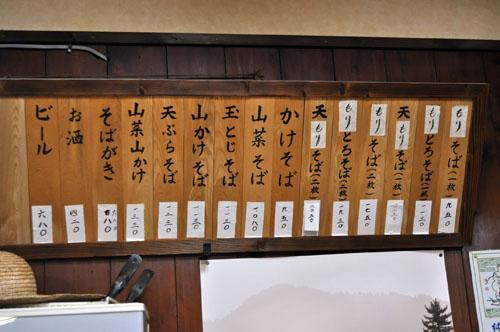 もりそば(一枚) 九五〇
もりとろそば(一枚)
天もりそば(一枚)
もりそば(二枚) 一七五〇
もりとろそば(二枚) 一九三〇
天もりそば(二枚)
かけそば 九五〇
山菜そば 一〇八〇
玉とじそば 一一三〇
山かけそば 一一三〇
天ぷらそば 一二三〇
山菜山かけ 一二三〇
そばがき
お酒 四二〇
ビール 六八〇